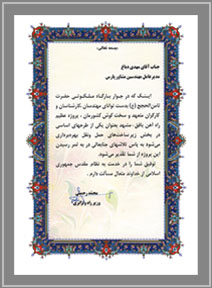 بسمه تعالی
جناب آقای مهدی دباغ
مدیرعامل مهندسین مشاور پارس
اینک که در جوار بارگاه ملکوتی حضرت
ثامن الحجج (ع) بدست توانای مهندسان، کارشناسان و
کارگران متعهد و سخت کوش کشورمان، پروژه عظیم
راه آهن بافق - مشهد بعنوان یکی از طرحهای اساسی
در بخش زیرساخت‌های حمل و نقل بهره‌برداری
می‌شود به پاس تلاشهای جنابعالی در به ثمر رسیدن
این پروژه از شما تقدیر می‌شود.
توفیق شما را در خدمت به نظام مقدس جمهوری
اسلامی از خداوند متعال مسألت دارم.
محمد رحمتی
وزیر راه و ترابری